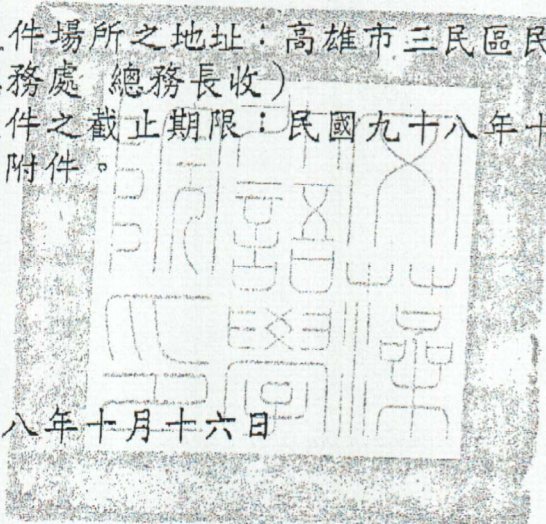 件場所之地址：高雄市三民區民
務處 總務長收）
件之截止期限：民國九十八年十
附件。
八年十月十六日
文藻
語學
院印